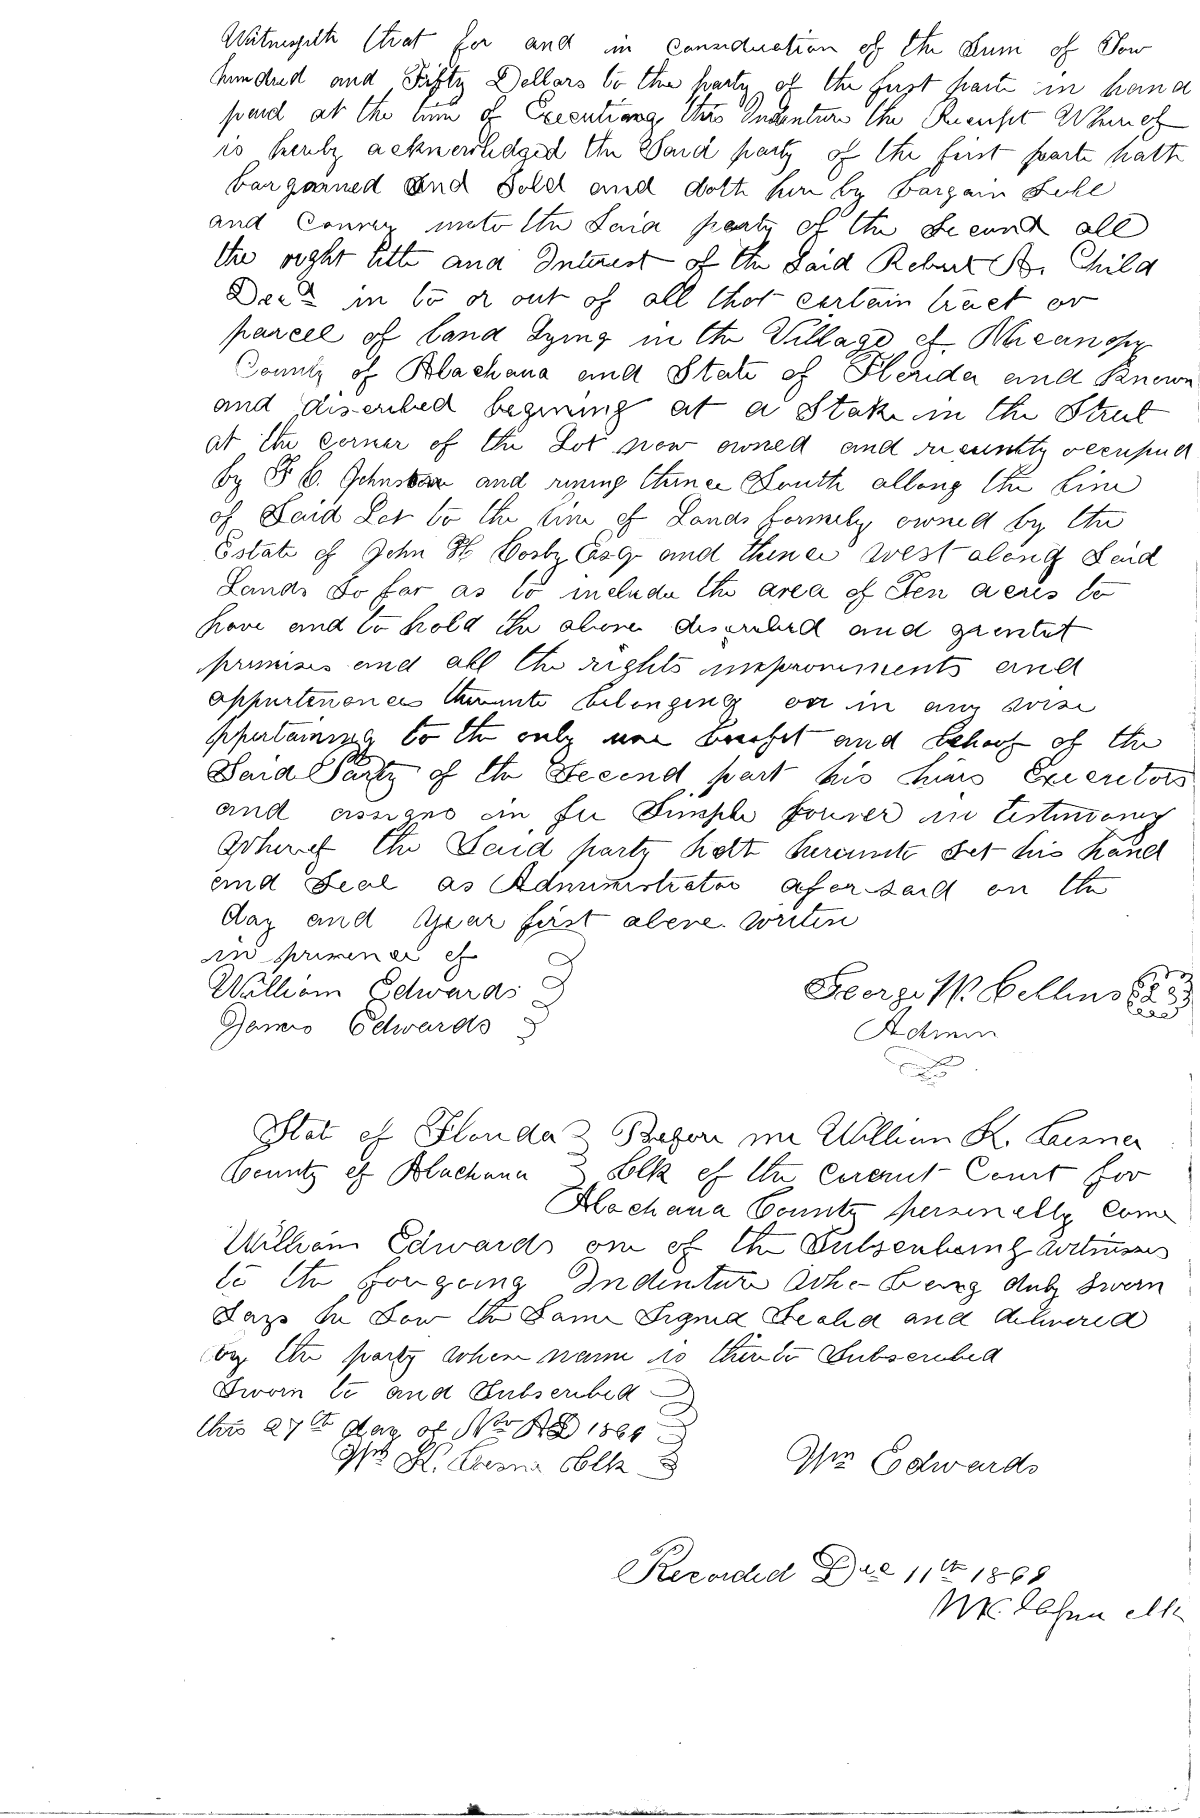 Witnesseth that for and in consideration of the Sum of Tow
hundred and Fifty Dollars to the party of the first parte in hand
paid at the time of Executiong this Indenture the Receipt Whereof
is hereby acknowlidged the Said party of the first parte hath
bargained and Sold and doth here by bargain Sell
and Convey unto the Said party of the Second all
the right title and Interest of the Said Robert A. Child
Decd in to or out of all that certain tract or
parcel of land Lying in the Village of Micanopy
County of Alachana and State of Florida and Known
and discribed begining at a Stake in the Street
at the corner of the Lot now owned and recently occupied
by F C. Johnston and runing thence South allong the Line
of Said Lot to the line of Lands formely owned by the
Estate of John H Cosby Esq and thence west along Said
Lands So far as to include the area of Ten acres to
have and to hold the above discribed and grantet
premises and all the rights improvements and
appurtenances thereunto belonging or in any wise
ppertaining to the only use benefit and behoof of the
Said Party of the Second part his hirs Executors
and assigns in fee Simple forever in testimony
Whereof the Said party hath hereunto Set his hand
and Seal as Administrator aforsaid on the
day and year first above writen
in presence of
William Edwards
James Edwards
George W. Collins
Admin
Stat of Florida Before me William K. Cesner
County of Alachana Clk of the Circuit Court for
Alachana County personelly Came
William Edwards one of the Subscribeing witnesses
to the forgoing Indenture Who being duly Sworn
Says he Saw the Same Signed Seald and delivered
by the party whose name is thereto Subscribed
Sworn to and Subscribed
this 27th day of Nov AD 1868
Wm K. Cesner Clk
Wm Edwards
Recorded Dec 11th 1868
WK. Cesna clk